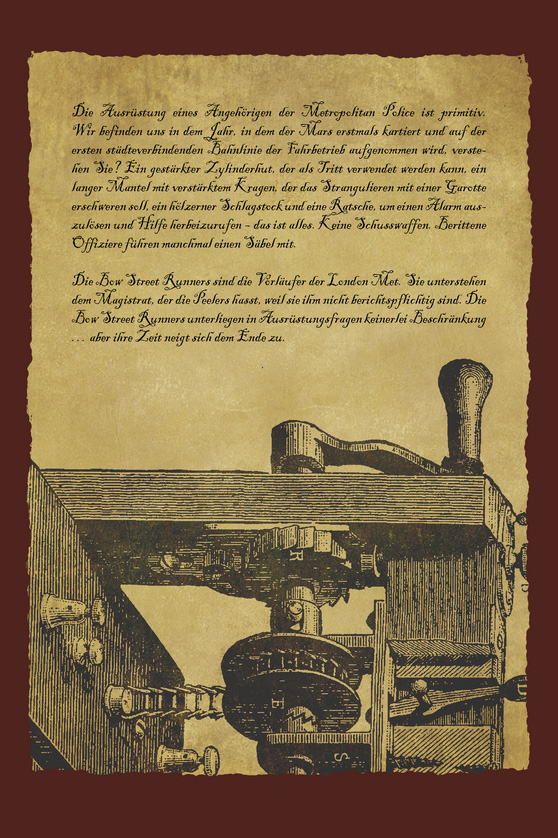 Die Ausrüstung eines Angehörigen der Metropolitan Police ist primitiv.
Wir befinden uns in dem Jahr, in dem der Mars erstmals kartiert und auf der
ersten städteverbindenden Bahnlinie der Fahrbetrieb aufgenommen wird, verste-
hen Sie? Ein gestärkter Zylinderhut, der als Tritt verwendet werden kann, ein
langer Mantel mit verstärktem Kragen, der das Strangulieren mit einer Garotte
erschweren soll, ein hölzerner Schlagstock und eine Ratsche, um einen Alarm aus-
zulösen und Hilfe herbeizurufen – das ist alles. Keine Schusswaffen. Berittene
Offiziere führen manchmal einen Säbel mit.
Die Bow Street Runners sind die Vorläufer der London Met. Sie unterstehen
dem Magistrat, der die Peelers hasst, weil sie ihm nicht berichtspflichtig sind. Die
Bow Street Runners unterliegen in Ausrüstungsfragen keinerlei Beschränkung
… aber ihre Zeit neigt sich dem Ende zu.
R
E
S